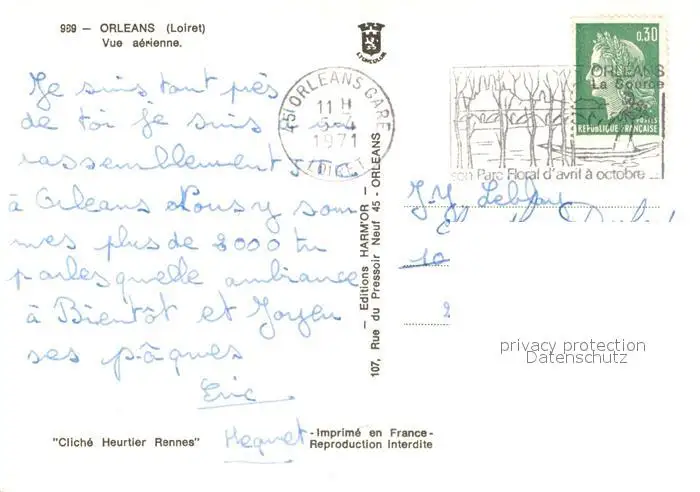 989 — ORLEANS (Loiret)
Vue aérienne.
LYONCOLOR
Je suis tant près
de toi je suis
rassemblement
à Orleans Nous y som
mes plus de 2000 tu
parles quelle ambiance
à Bientôt et Joyeu
ses pâques
Eric
Hequet
"Cliché Heurtier Rennes"
-Imprimé en France-
Reproduction Interdite
107, Rue du Pressoir Neuf 45 - ORLEANS
— Editions HARM'OR —
45 ORLEANS GARE
11 H
5-4
1971
LOIRET
0,30
POSTES
REPUBLIQUE FRANÇAISE
ORLEANS
La Source
son Parc Floral d'avril à octobre
J-Y Leblay
10
2
privacy protection
Datenschutz